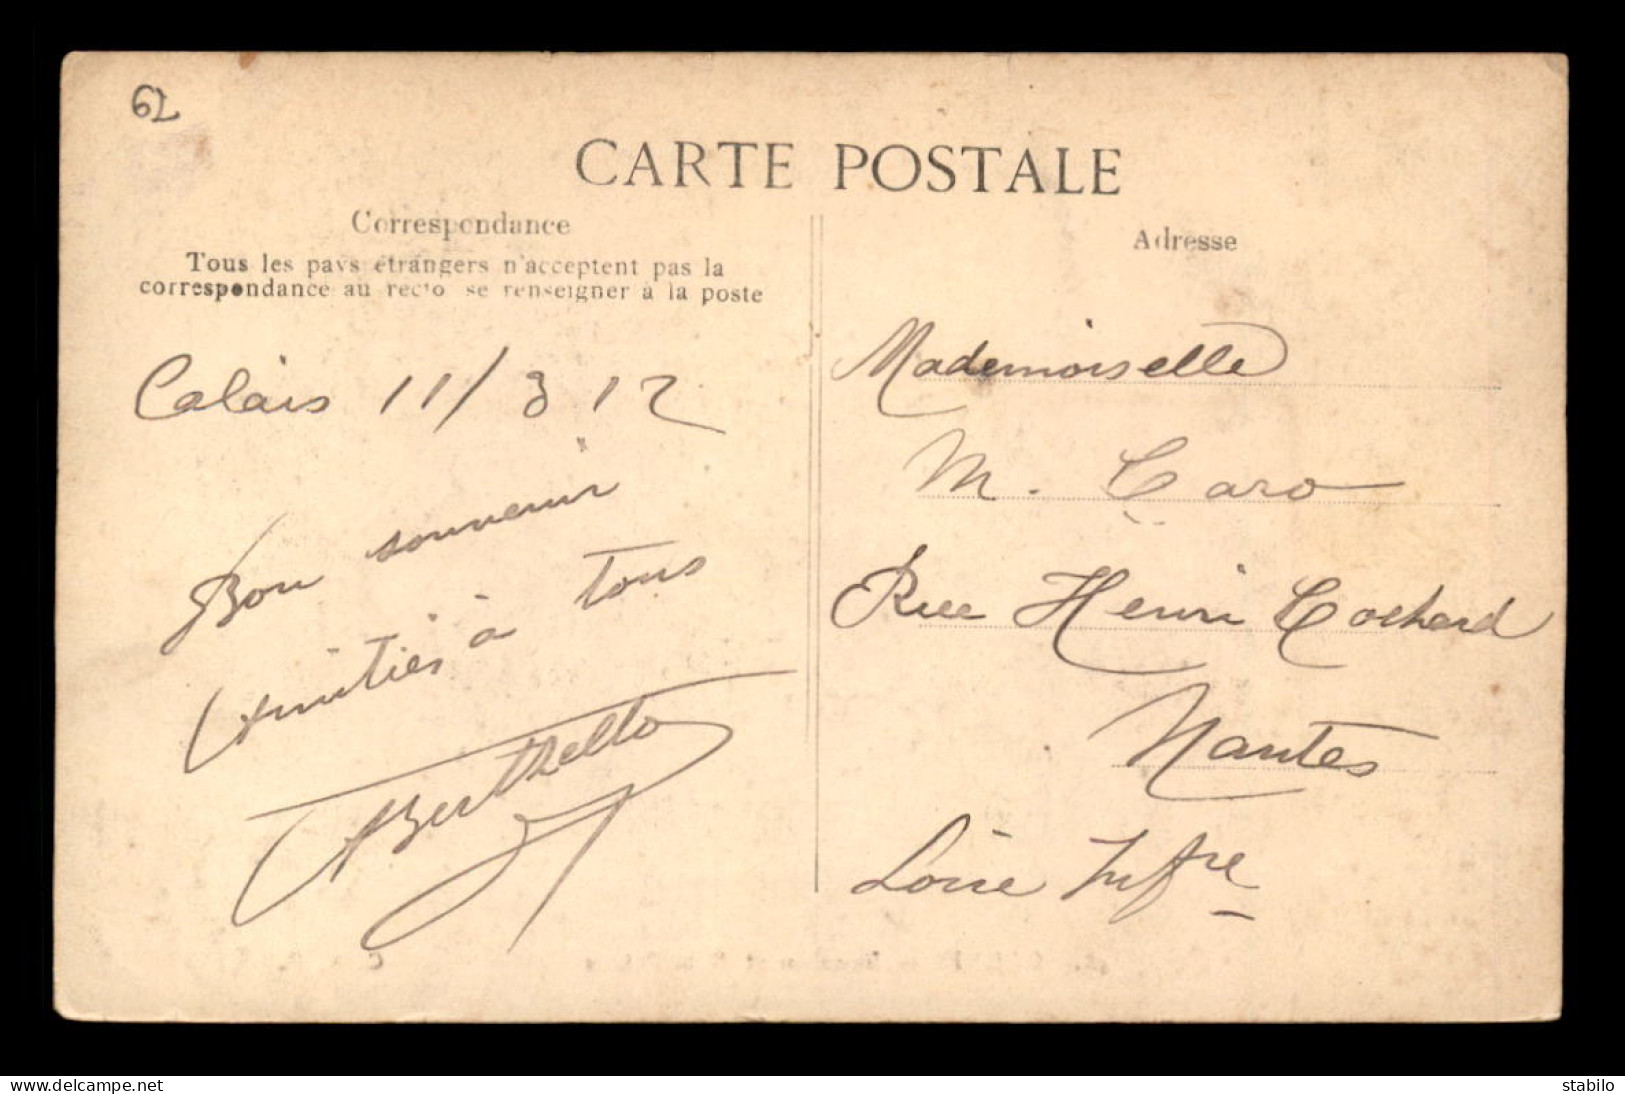 62
CARTE POSTALE
Correspondance
Tous les pays étrangers n'acceptent pas la
correspondance au recto se renseigner à la poste
Calais 11/3 12
Bon souvenir
Amitiés à tous
Adresse
Mademoiselle
M. Caro
Rue Henri Cochard
Nantes
Loire Infre
delcampe.net
stabilo